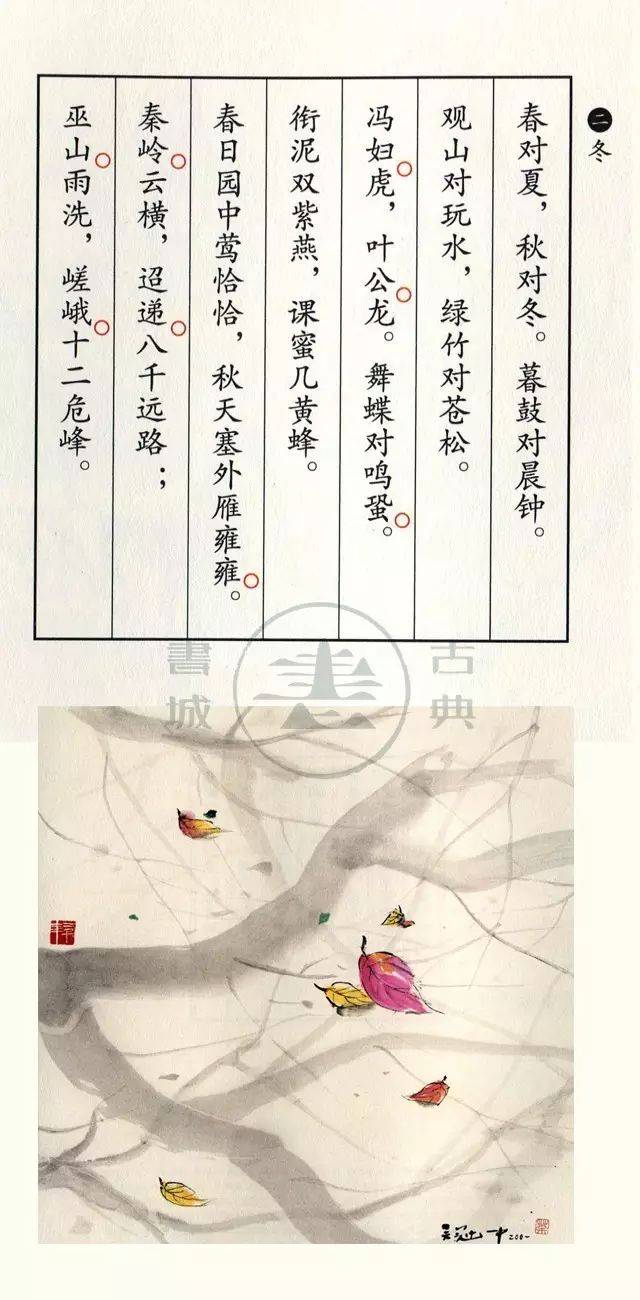 二冬
春对夏，秋对冬。暮鼓对晨钟。
观山对玩水，绿竹对苍松。
冯妇虎，叶公龙。舞蝶对鸣蛩。
衔泥双紫燕，课蜜几黄蜂。
春日园中莺恰恰，秋天塞外雁雍雍。
秦岭云横，迢递八千远路；
巫山雨洗，嵯峨十二危峰。
古典
書城
吴冠中 200